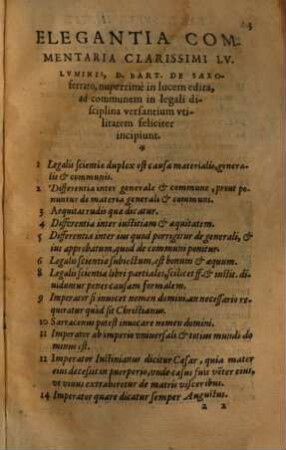 ELEGANTIA COM
MENTARIA CLARISSIMI LV.
LVMINIS, D. BART. DE SAXO-
ferrato, nuperrimè in lucem edita,
ad communem in legali di-
sciplina versantium vti-
litatem feliciter
incipiunt.
*
1 Legalis scientia duplex est causa materialis, genera-
lis & communis.
2 Differentia inter generale & commune, prout po-
nuntur de materia generali & communi.
3 Aequitas rudis quæ dicatur.
4 Differentia inter iustitiam & æquitatem.
5 Differentia inter ius quod porrigitur de generali, &
ius approbatum, quod de communi ponitur.
6 Legalis scientia subiectum, est bonum & æquum.
8 Legalis scientiæ libri partiales, scilicet ff. & instit. di-
uiduntur penes causam formalem.
9 Imperator si inuocet nomen domini, an necessario re-
quiratur quòd sit Christianus.
10 Sarracenus potest inuocare nomen domini.
11 Imperator ab imperio vniuersali & totius mundi do
minus est.
12 Imperator Iustinianus dicitur Cæsar, quia mater
eius decessit in puerperio, vnde cæsus fuit vēter eius,
vt viuus extraheretur de matris visceribus.
14 Imperator quare dicatur semper Augustus.
a 2